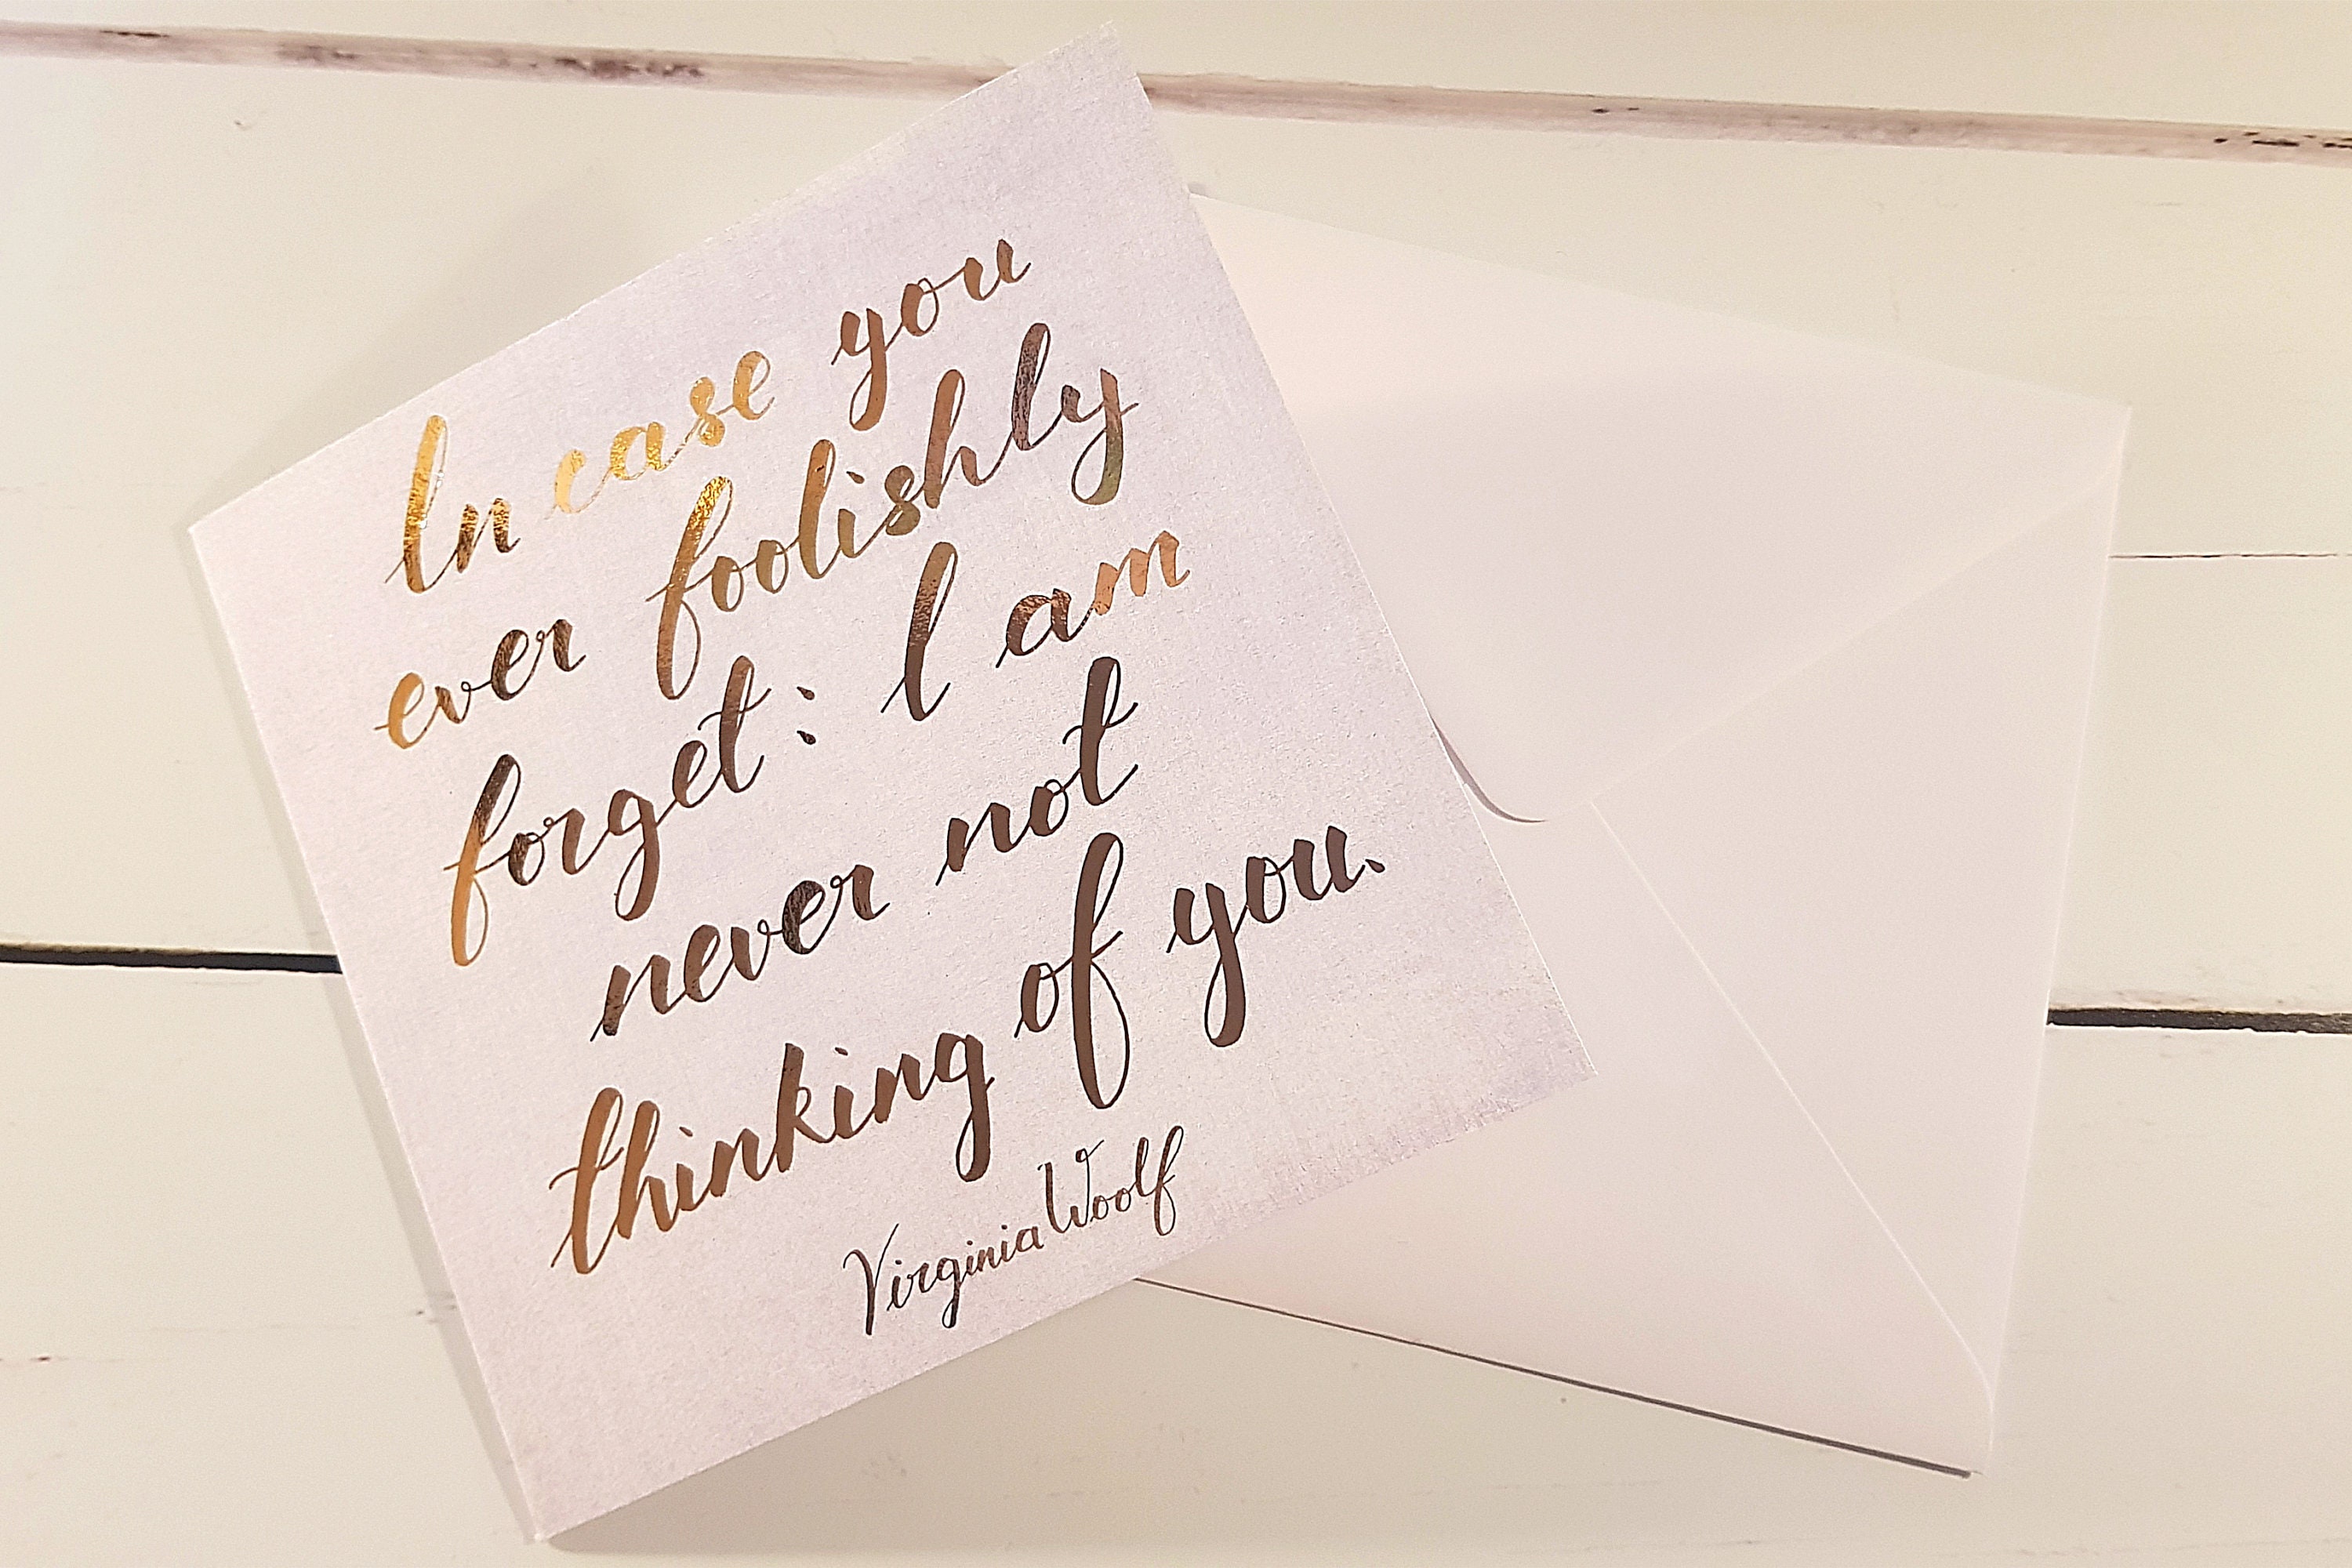 In case you
ever foolishly
forget: I am
never not
thinking of you.
Virginia Woolf